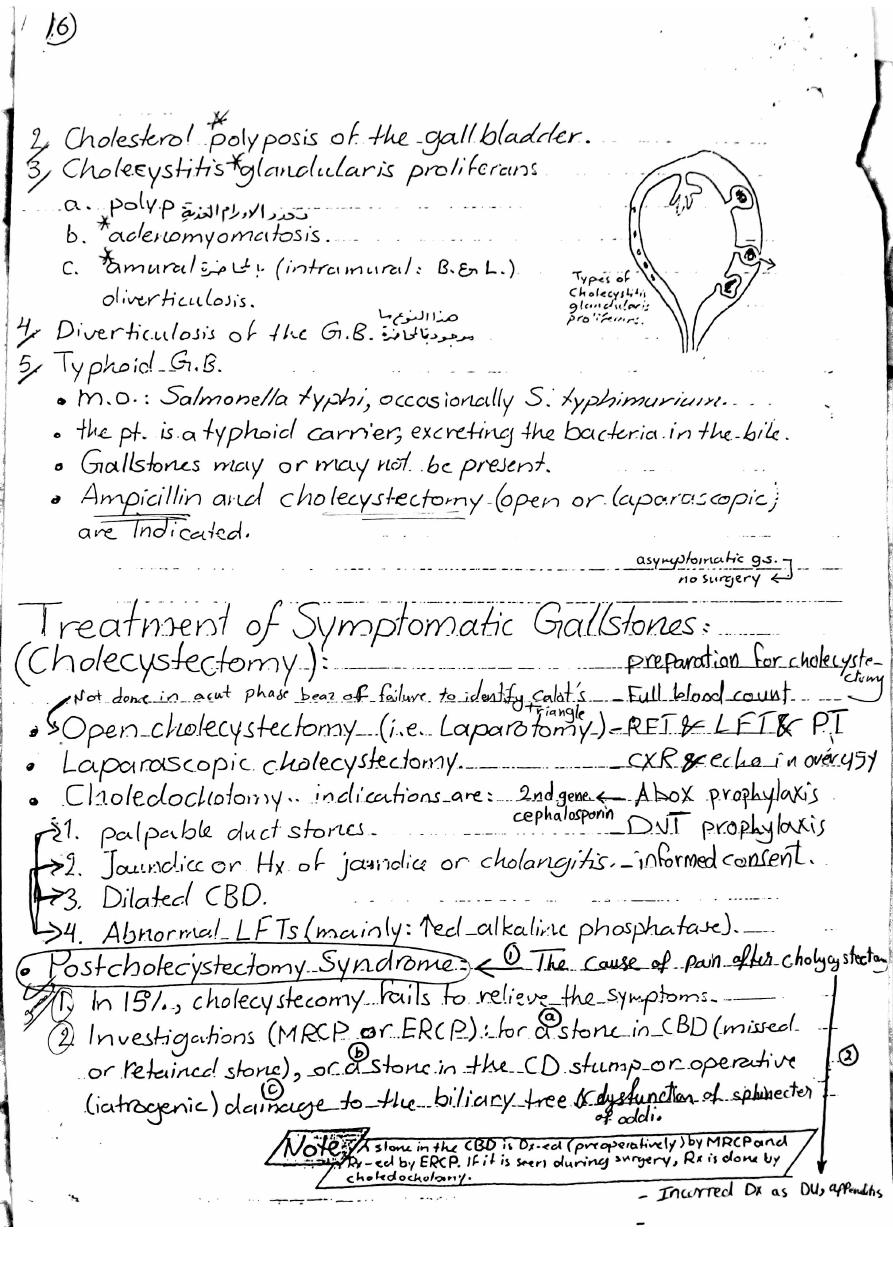 16
2, Cholesterol *polyposis of the gallbladder.
3, Cholecystitis *glandularis proliferans
a. polyp
b. *adenomyomatosis.
c. *amural (intramural: B. & L.)
diverticulosis.
Types of
Cholecystitis
glandularis
proliferans.
هذا النوع
4, Diverticulosis of the G.B.
5, Typhoid G.B.
• m.o.: Salmonella typhi, occasionally S. typhimurium.
• the pt. is a typhoid carrier, excreting the bacteria in the bile.
• Gallstones may or may not be present.
• Ampicillin and cholecystectomy (open or laparascopic)
are Indicated.
asymptomatic g.s.
no surgery ←
Treatment of Symptomatic Gallstones:
(Cholecystectomy):
preparation for cholecyste-
ctomy
Not done in acut phase of failure to identify Calot's
triangle
- Full blood count
• Open cholecystectomy (i.e. Laparotomy)
- RFT & LFT & PT
• Laparascopic cholecystectomy.
- CXR & echo in over 45y
• Choledochotomy.. indications are:
2nd gene ← Abox prophylaxis
cephalosporin
1. palpable duct stones.
- DVT prophylaxis
2. Jaundice or Hx of jaundice or cholangitis.
- informed consent.
3. Dilated CBD.
4. Abnormal LFTs (mainly: ↑ed alkaline phosphatase).
• Postcholecystectomy Syndrome: ← ① The cause of pain after cholycystectom
1. In 15%, cholecystecomy fails to relieve the symptoms.
2. Investigations (MRCP or ERCP): for ⓐ a stone in CBD (missed
or retained stone), or ⓑ a stone in the CD stump or operative
②
(iatrogenic) ⓒ damage to the biliary tree & dysfunction of sphinecter
of oddi.
Note: A stone in the CBD is Dx-ed (preoperatively) by MRCP and
Rx-ed by ERCP. If it is seen during surgery, Rx is done by
choledocholomy.
- Incurred Dx as DU, appendits